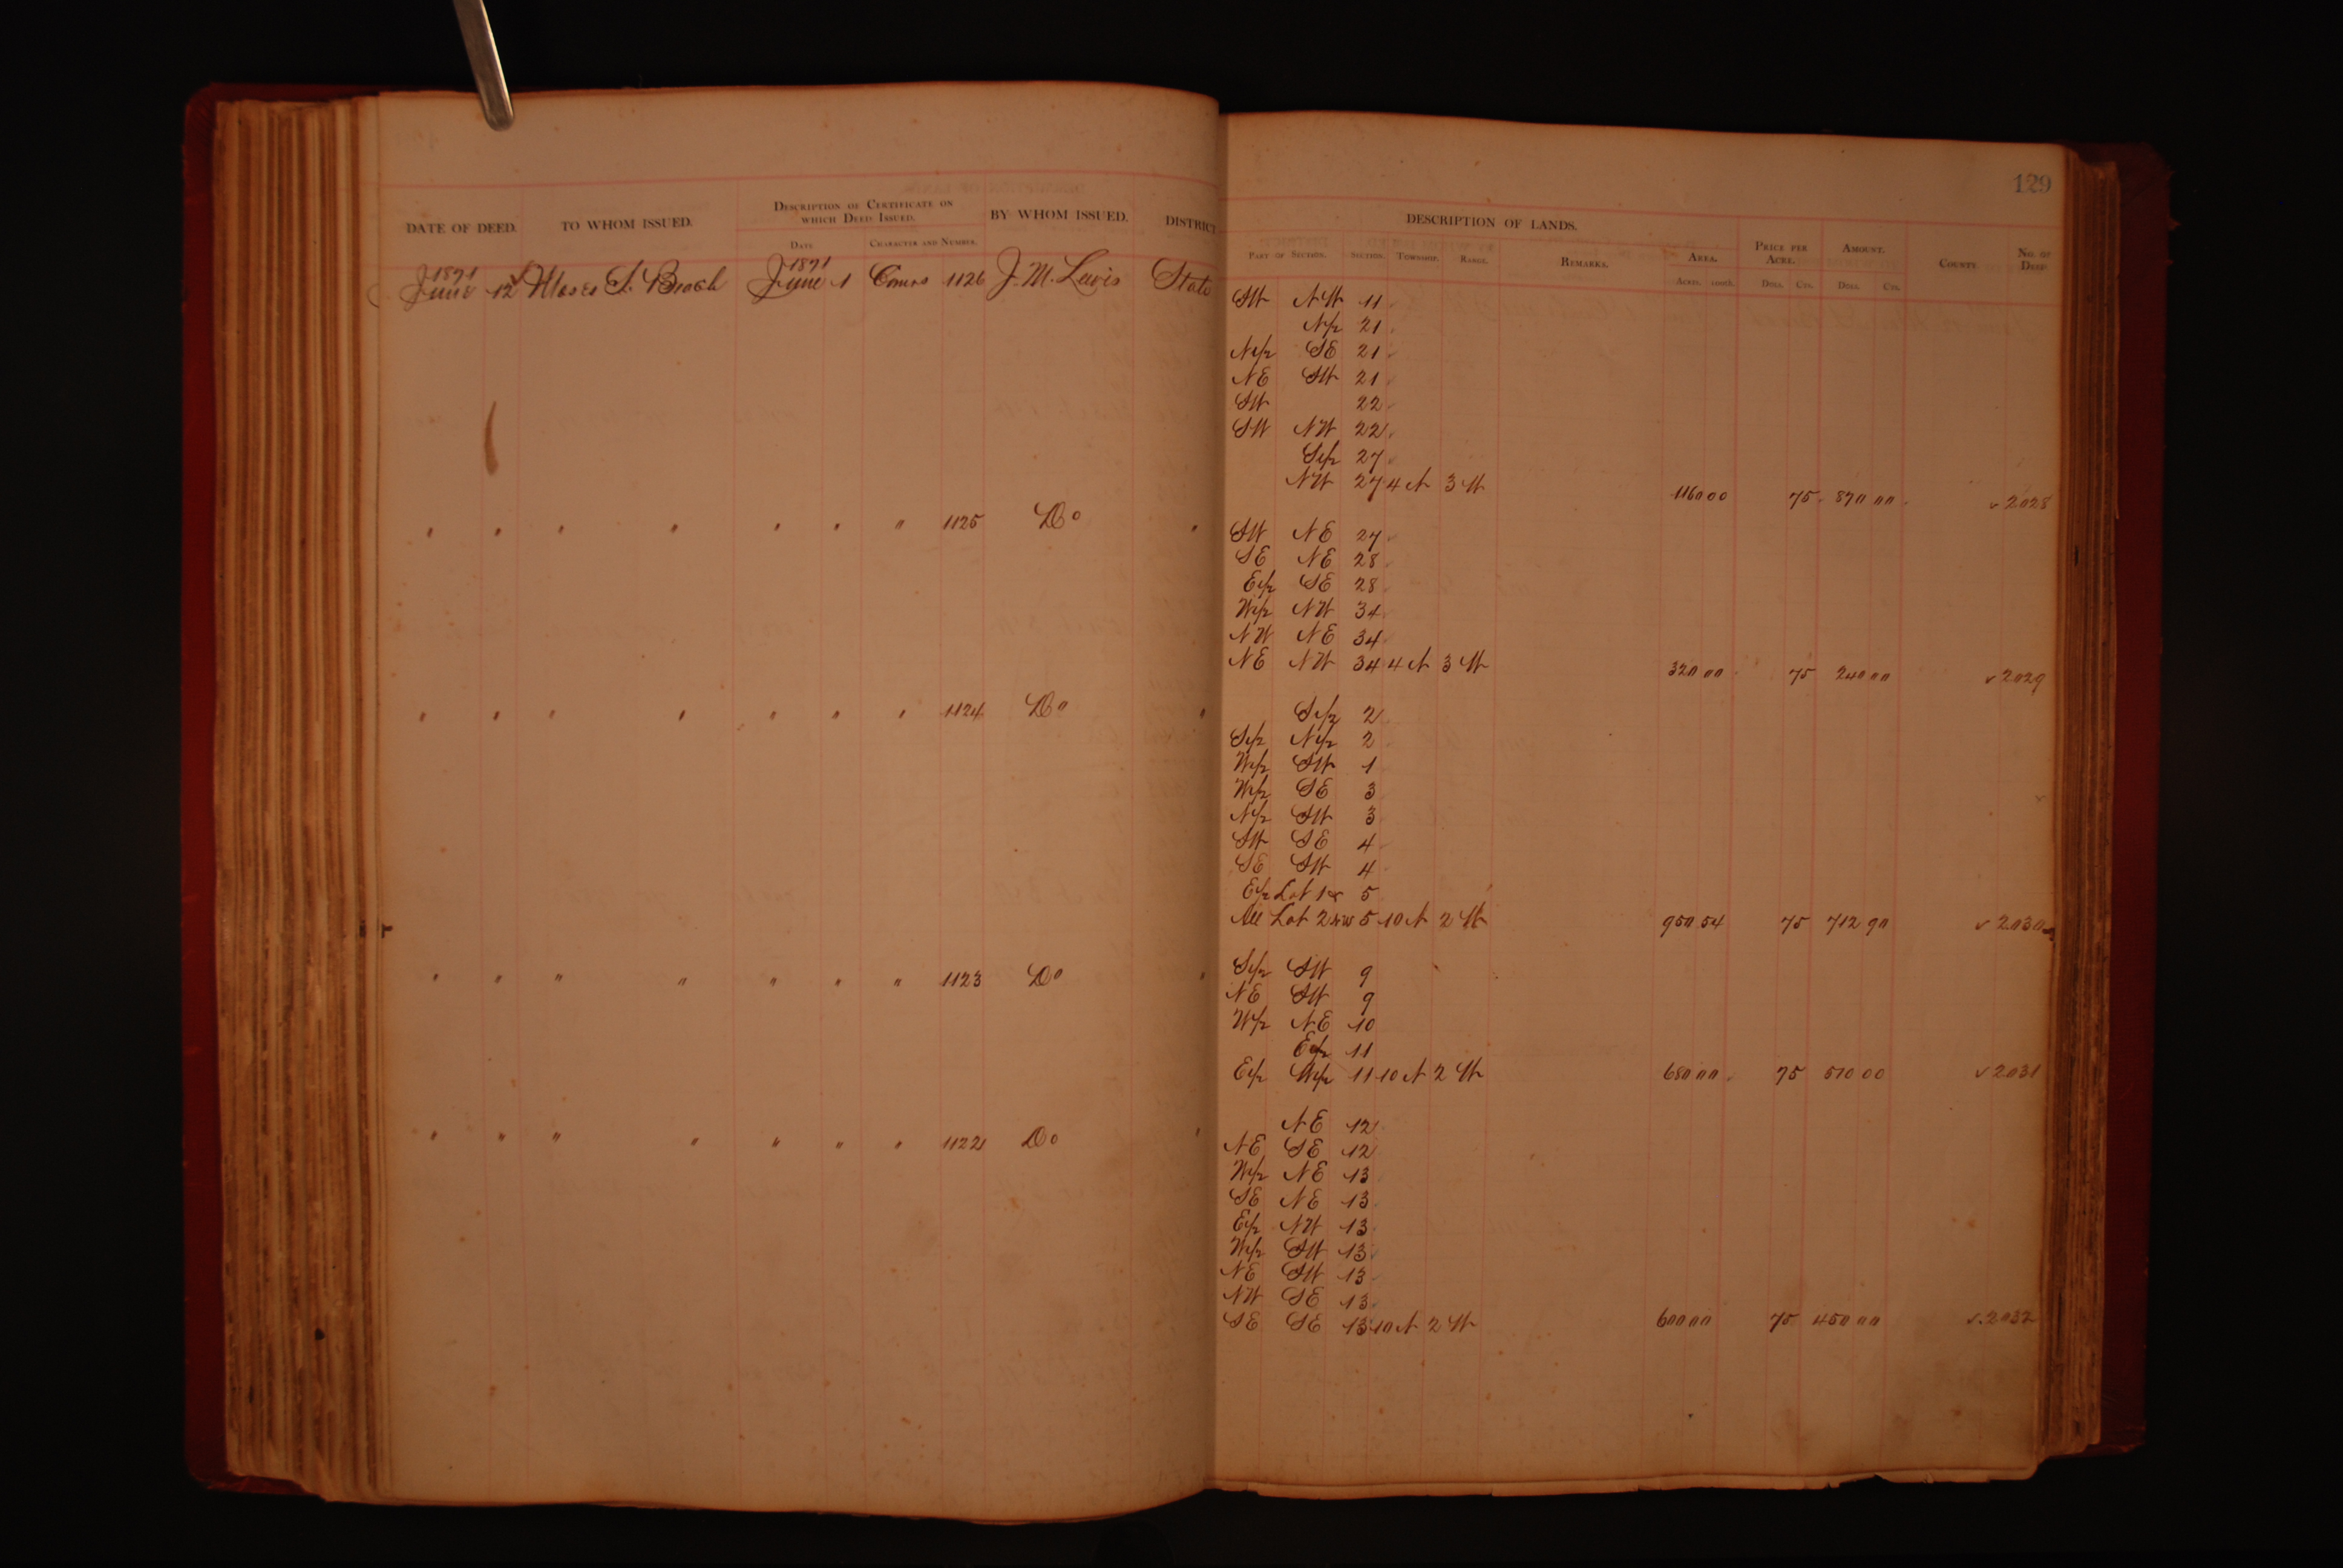 129
DATE OF DEED. TO WHOM ISSUED. DESCRIPTION OF CERTIFICATE ON WHICH DEED ISSUED. BY WHOM ISSUED. DISTRICT
DATE CHARACTER AND NUMBER.
1871 1871
June 12 Moses S. Beach June 1 Comrs 1126 J. M. Lewis State
" " " " " " " 1125 Do "
" " " " " " " 1124 Do "
" " " " " " " 1123 Do "
" " " " " " " 1122 Do "
DESCRIPTION OF LANDS. PRICE PER ACRE. AMOUNT. COUNTY NO. OF DEED
PART OF SECTION. SECTION. TOWNSHIP. RANGE. REMARKS. AREA.
ACRES. 100th. DOLL. CTS. DOLL. CTS.
SW NW 11
N1/2 21
N1/2 SE 21
NE SW 21
SW 22
SW NW 22
S1/2 27
NW 27 4 N 3 W 1160 00 75 870 00 ✓ 2028
SW NE 27
SE NE 28
E1/2 SE 28
W1/2 NW 34
NW NE 34
NE NW 34 4 N 3 W 320 00 75 240 00 ✓ 2029
S1/2 2
S1/2 N1/2 2
W1/2 SW 1
W1/2 SE 3
N1/2 SW 3
SW SE 4
SE SW 4
E1/2 Lot 1 5
All Lot 2 NW 5 10 N 2 W 950 54 75 712 90 ✓ 2030
S1/2 SW 9
NE SW 9
W1/2 NE 10
E1/2 11
E1/2 W1/2 11 10 N 2 W 680 00 75 510 00 ✓ 2031
NE 12
NE SE 12
W1/2 NE 13
SE NE 13
E1/2 NW 13
W1/2 SW 13
NE SW 13
NW SE 13
SE SE 13 10 N 2 W 600 00 75 450 00 ✓ 2032